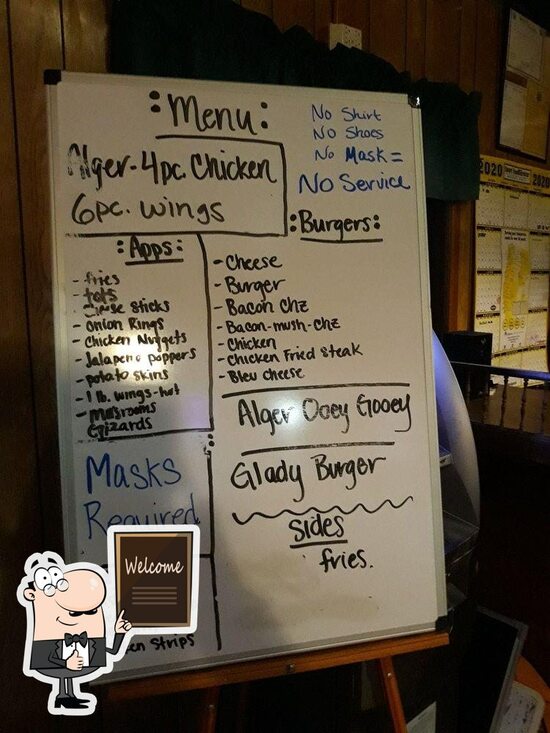 :Menu:
No Shirt
No Shoes
No Mask =
No Service
Alger-4pc. Chicken
6pc. wings
:Apps:
- fries
- tots
- Cheese Sticks
- Onion Rings
- Chicken Nuggets
- Jalapeno poppers
- potato skins
- 1 lb. wings-hot
- Mushrooms
Gizzards
:Burgers:
- Cheese
- Burger
- Bacon Chz
- Bacon-mush-Chz
- Chicken
- Chicken Fried Steak
- Bleu cheese
Alger Ooey Gooey
Glady Burger
Sides
fries.
Masks
Required
Strips
Welcome
2020
2020